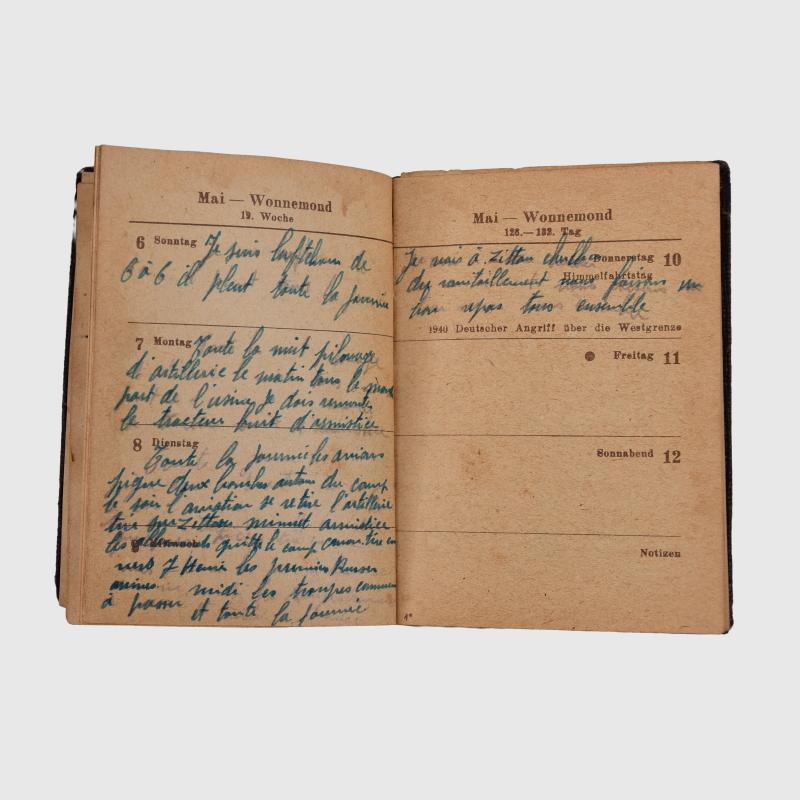 Mai — Wonnemond
19. Woche
6 Sonntag Je suis de
6 à 6 il pleut toute la journée
7 Montag Toute la nuit pilonnage
d'artillerie le matin tous le
part de l'usine Je dois
le tracteur bruit d'armistice
8 Dienstag
Toute la journée les avions
pique bombes autour du camp
le soir l'aviation se retire l'artillerie
tire sur Zittau minuit armistice
9 Mittwoch
les quitte le camp
vers 7 heures les premiers Russes
midi les troupes
à passer et toute la journée
Mai — Wonnemond
128.—132. Tag
Donnerstag 10
Himmelfahrtstag
Je vais à Zittau
du ravitaillement nous faisons un
bon repas tous ensemble
1940 Deutscher Angriff über die Westgrenze
Freitag 11
Sonnabend 12
Notizen